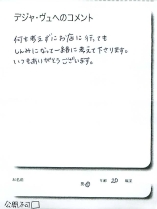 デジャ・ヴュへのコメント
何も考えずにお店に行っても
しんみになって一緒に考えて下さります。
いつもありがとうございます。
お名前
男
年齢 20
公開不可□